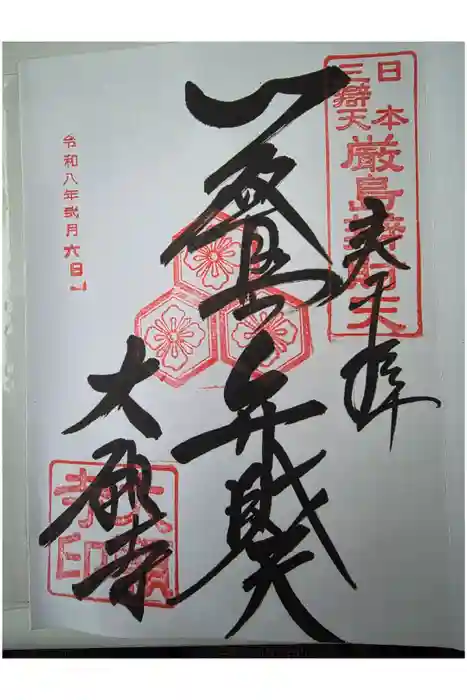 日本
三辯天
厳島辯財天
奉拝
厳島弁財天
大願寺
大願寺印
令和八年弐月六日